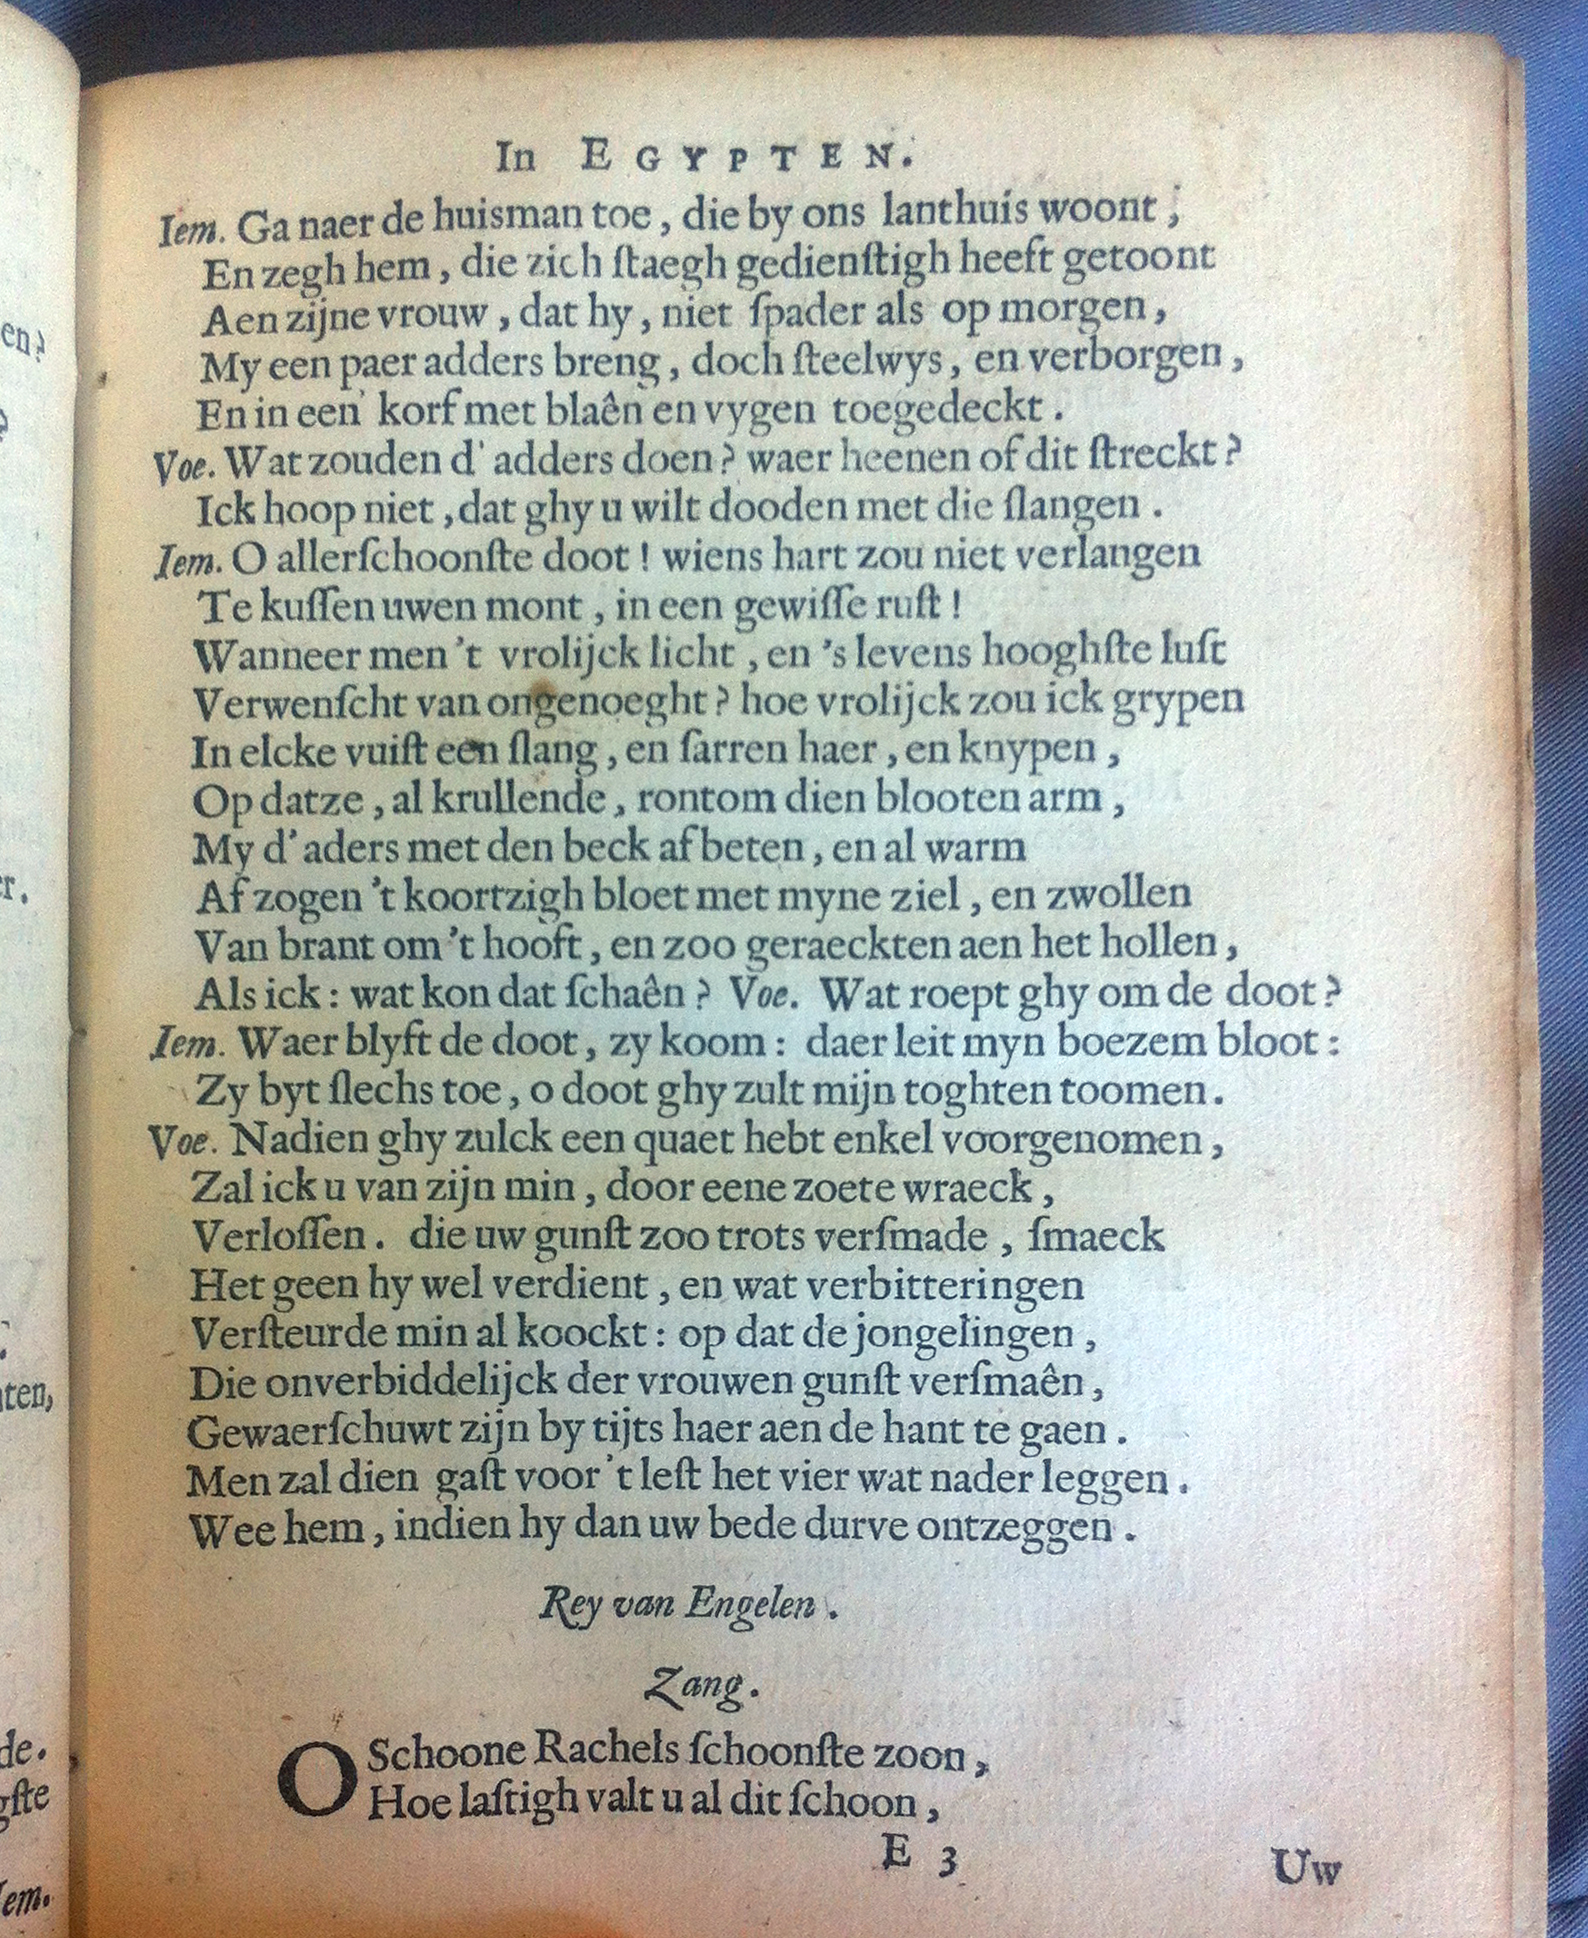 In EGYPTEN.
Iem. Ga naer de huisman toe, die by ons lanthuis woont,
En zegh hem, die zich ſtaegh gedienſtigh heeft getoont
Aen zijne vrouw, dat hy, niet ſpader als op morgen,
My een paer adders breng, doch ſteelwys, en verborgen,
En in een korf met blaên en vygen toegedeckt.
Voe. Wat zouden d' adders doen? waer heenen of dit ſtreckt?
Ick hoop niet, dat ghy u wilt dooden met die ſlangen.
Iem. O allerſchoonſte doot! wiens hart zou niet verlangen
Te kuſſen uwen mont, in een gewiſſe ruſt!
Wanneer men 't vrolijck licht, en 's levens hooghſte luſt
Verwenſcht van ongenoeght? hoe vrolijck zou ick grypen
In elcke vuiſt een ſlang, en ſarren haer, en knypen,
Op datze, al krullende, rontom dien blooten arm,
My d' aders met den beck af beten, en al warm
Af zogen 't koortzigh bloet met myne ziel, en zwollen
Van brant om 't hooft, en zoo geraeckten aen het hollen,
Als ick: wat kon dat ſchaên? Voe. Wat roept ghy om de doot?
Iem. Waer blyft de doot, zy koom: daer leit myn boezem bloot:
Zy byt ſlechs toe, o doot ghy zult mijn toghten toomen.
Voe. Nadien ghy zulck een quaet hebt enkel voorgenomen,
Zal ick u van zijn min, door eene zoete wraeck,
Verloſſen. die uw gunſt zoo trots verſmade, ſmaeck
Het geen hy wel verdient, en wat verbitteringen
Verſteurde min al koockt: op dat de jongelingen,
Die onverbiddelijck der vrouwen gunſt verſmaên,
Gewaerſchuwt zijn by tijts haer aen de hant te gaen.
Men zal dien gaſt voor 't leſt het vier wat nader leggen.
Wee hem, indien hy dan uw bede durve ontzeggen.
Rey van Engelen.
Zang.
O Schoone Rachels ſchoonſte zoon,
Hoe laſtigh valt u al dit ſchoon,
E 3
Uw